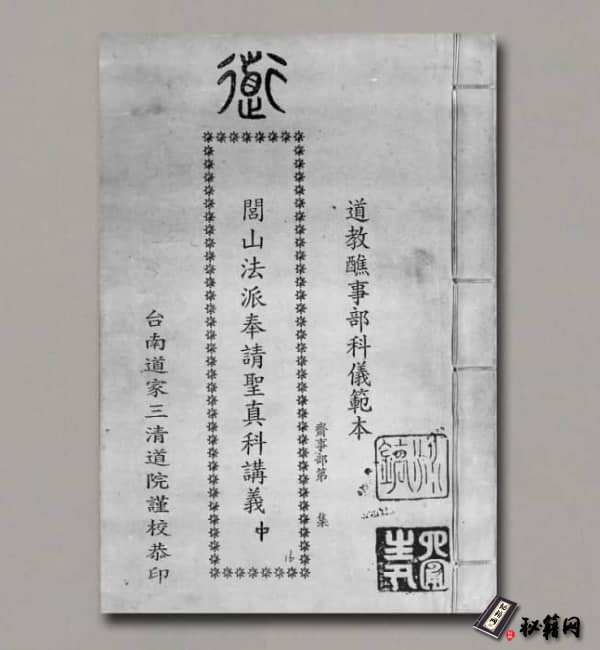 道
道教醮事部科儀範本
齋事部第　集
閭山法派奉請聖真科講義 中
16
台南道家三清道院謹校恭印
秘籍网